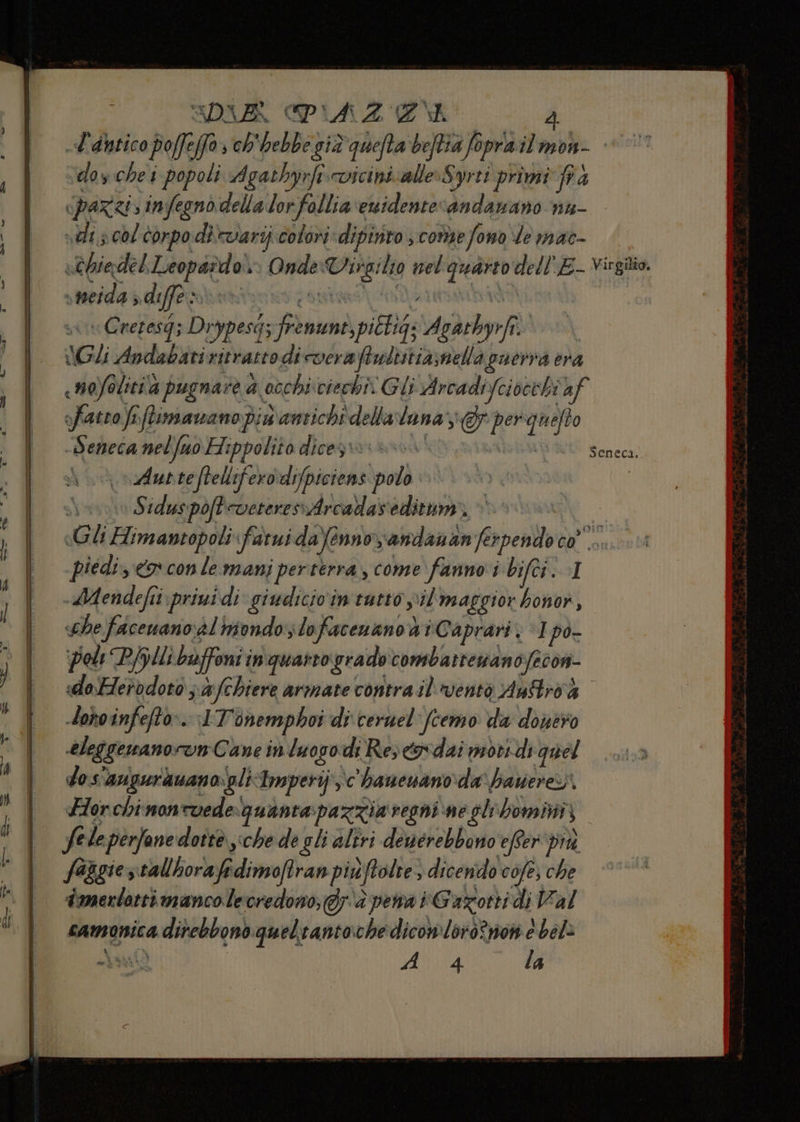 DI PAZZI. 4
l'antico possesso, ch'hebbe già questa bestia sopra il mon-
do, che i popoli Agathyrsi vicini alle Syrti primi frà
pazzi, in segno della lor follia euidente andauano nu-
di, col corpo di varij colori dipinto, come sono le mac-
chie del Leopardo. Onde Virgilio nel quarto dell'E-
Virgilio.
neida, disse:
Cretesq; Drypesq; fremunt, pictiq; Agathyrsi.
Gli Andabati ritratto di vera stultitia, nella guerra era
no soliti à pugnare à occhi ciechi. Gli Arcadi sciocchi af
fatto si stimauano più antichi della luna, & per questo
Seneca nel suo Hippolito dice,
Seneca.
Aut te stellifero dispiciens polo
Sidus post veteres Arcadas editum,
Gli Himantopoli fatui da senno, andauan serpendo co'
piedi, & con le mani per terra, come fanno i bisci. I
Mendesii priui di giudicio in tutto, il maggior honor,
che faceuano al mondo, lo faceuano à i Caprari. I po-
poli Psylli buffoni in quarto grado combatteuano secon-
do Herodoto, à schiere armate contra il vento Austro à
loro infesto. I Tonemphoi di ceruel scemo da douero
eleggeuano vn Cane in luogo di Re, & dai moti di quel
lo s'augurauano gli Imperij, c'haueuano da hauere.
Hor chi non vede quanta pazzia regni ne gli homini,
se le persone dotte, che de gli altri deuerebbono esser più
saggie, tallhora si dimostran più stolte, dicendo cose, che
i merlotti manco le credono, & à pena i Gazotti di Val
camonica direbbono quel tanto che dicon loro? non è bel-
A 4 la